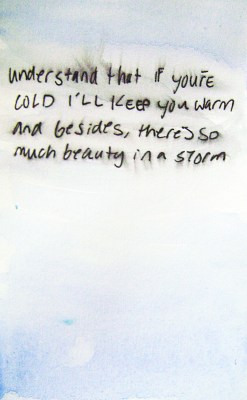 understand that if you're
COLD I'LL KEEP you warm
and besides, there's so
much beauty in a storm